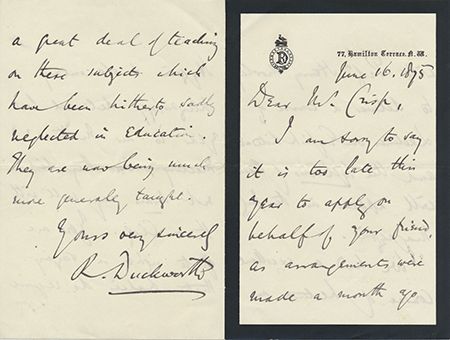 77, Hamilton Terrace. N.W.
June 16. 1875
Dear Mr. Crisp,
I am sorry to say
it is too late this
year to apply on
behalf of your friend,
as arrangements were
made a month ago
a great deal of teaching
on these subjects which
have been hitherto sadly
neglected in Education.
They are now being much
more generally taught.
Yours very sincerely
R. Duckworth